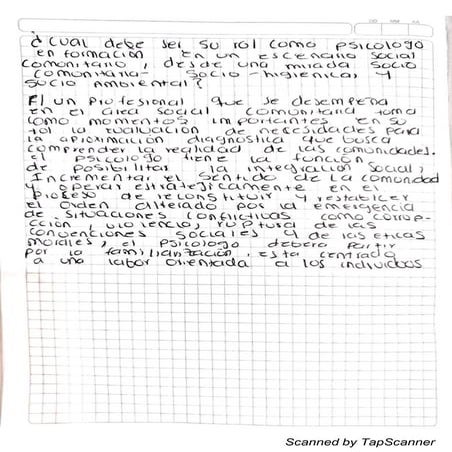 ¿ cual debe ser su rol como psicologo
en formacion en un escenario social
comunitario, desde una mirada socio
comunitaria- socio-higienica, y
socio Ambiental?
El un profesional que se desempeña
en el area social comunitaria toma
como momentos importantes en su
rol la evaluación de necesidades para
la aproximacion diagnostica que busca
comprender la realidad de las comunidades.
el psicologo tiene la función
de posibilitar la integracion social,
Incrementar el sentido de la comunidad
y operar estrategicamente en el
proceso de reconstituir y restablecer
el orden alterado por la emergencia
de situaciones conflictivas como corrup-
cción, violencia, ruptura de las
convenciones sociales y de las eticas
morales, el psicologo debera partir
por la familiarización, esta centrado
a una labor orientada a los individuos
Scanned by TapScanner